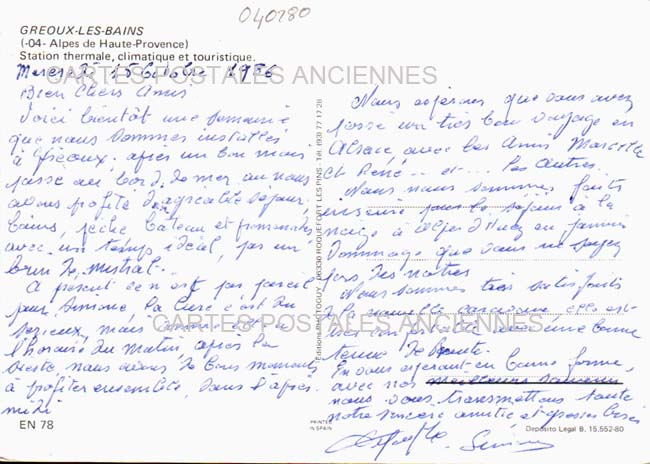 040280
GREOUX-LES-BAINS
(-04- Alpes de Haute-Provence)
Station thermale, climatique et touristique.
Mercredi 15 Octobre 1986
CARTES POSTALES ANCIENNES
Bien Chers Amis
Voici bientôt une semaine
que nous sommes installés
à Gréoux, après un bon mois
passé au bord de mer où nous
avons profité d'agréable séjour,
bains, pêche bateau et promenades
avec un temps idéal, pas un
brin de mistral.
A présent ce n'est pas pareil
pour Simone, la cure c'est du
sérieux, mais
l'horaire du matin, après la
sieste, nous avons de bons moments
à profiter ensemble, dans l'après
midi
EN 78
Editions PHOTOGUY 06330 ROQUEFORT LES PINS Tél. (93) 77 17 28
PRINTED
IN SPAIN
Nous espérons que vous avez
passé un très bon voyage en
Alsace, avec les Amis Marcelle
et René et les autres.
Nous nous sommes faits
inscrire pour le séjour à la
neige à Alpes d'Huez en janvier
Dommage que vous ne soyez
pas des nôtres
Nous sommes très satisfaits
de la nouvelle elle est
très avec une bonne
tenue de route.
En vous espérant en bonne forme,
avec nos
nous vous transmettons toute
notre sincère amitié et grosses bises
Simone
CARTES POSTALES ANCIENNES
Deposito Legal B. 15.552-80